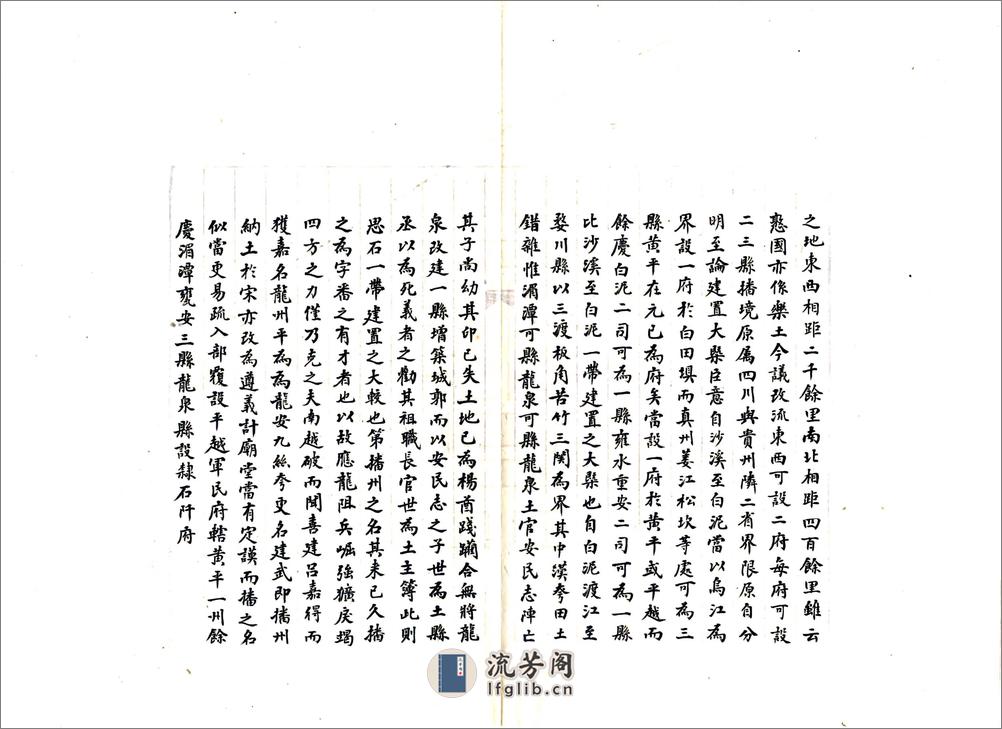 之地東西相距二千餘里南北相距四百餘里雖云
憊國亦係樂土今議改流東西可設二府每府可設
二三縣播境原屬四川與貴州隣二省界限原自分
明至論建置大槩臣意自沙溪至白泥當以烏江為
界設一府於白田壩而真州姜江松坎等處可為三
縣黃平在元已為府矣當設一府於黃平或平越而
餘慶白泥二司可為一縣雍水重安二司可為一縣
比沙溪至白泥一帶建置之大槩也自白泥渡江至
婺川縣以三渡板角苦竹三関為界其中漢夸田土
錯雜惟湄潭可縣龍泉可縣龍泉土官安民志陣亡
其子尚幼其印已失土地已為楊酋踐躪合無將龍
泉改建一縣增築城郭而以安民志之子世為土縣
丞以為死義者之勸其祖職長官世為土主簿此則
思石一帶建置之大較也第播州之名其来已久播
之為字番之有才者也以故應龍阻兵崛強獷戾竭
四方之力僅乃克之夫南越破而聞喜建呂嘉得而
獲嘉名龍州平為為龍安九絲夸更名建武即播州
納土於宋亦改為遵義計廟堂當有定謨而播之名
似當更易疏入部覆設平越軍民府轄黃平一州餘
慶湄潭甕安三縣龍泉縣設隸石阡府
流芳阁
lfglib.cn